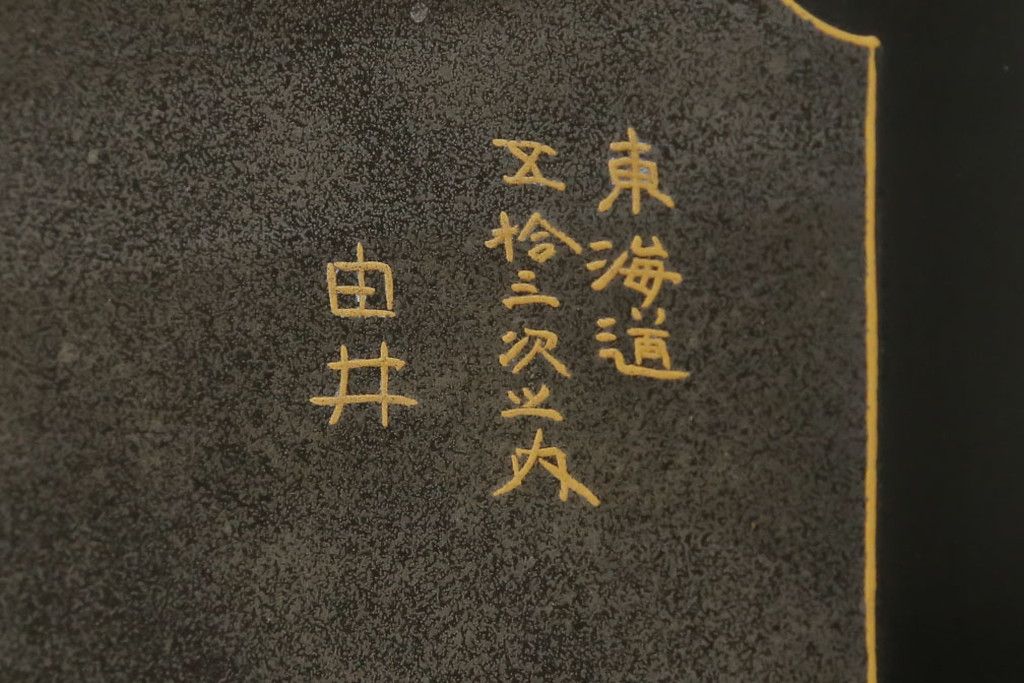 東海道
五拾三次之内
由井